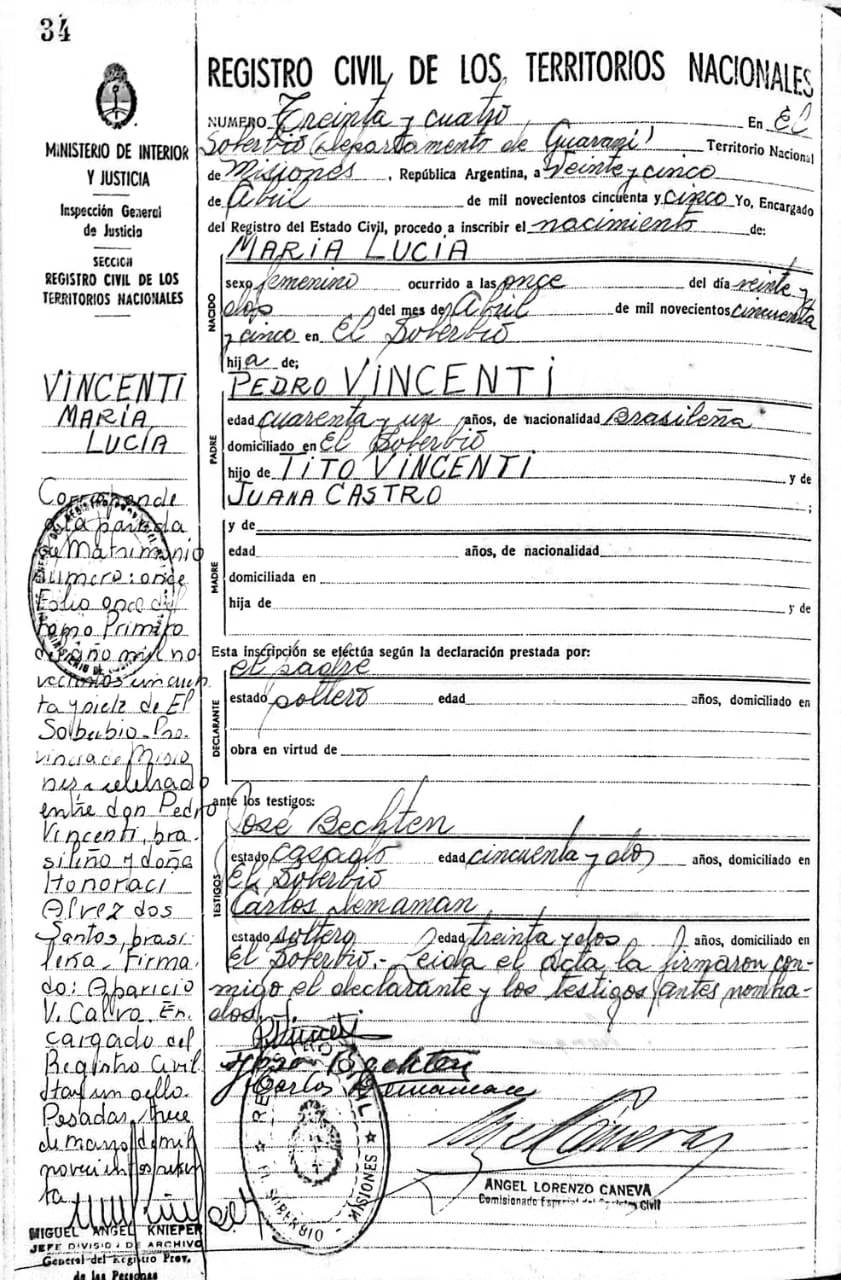 34
MINISTERIO DE INTERIOR
Y JUSTICIA
Inspección General
de Justicia
SECCION
REGISTRO CIVIL DE LOS
TERRITORIOS NACIONALES
VINCENTI
MARÍA
LUCÍA
Corresponde
a la partida
de Matrimonio
número: once
Folio once del
tomo Primero
del año mil no
vecientos sincuen
ta y siete de El
Soberbio - Pro.
vincia de Misio
nes - celebrado
entre don Pedro
Vincenti, bra-
sileño y doña
Honoraci
Alvez dos
Santos, brasi
leña - Firma-
do: Aparicio
V. Calvo. En
cargado del
Registro Civil
Hay un sello.
Posadas,
de marzo de mil
novecientos
ta
MIGUEL ANGEL KNIEPER
JEFE DIVISION DE ARCHIVO
General del Registro Prov.
de las Personas
REGISTRO CIVIL DE LOS TERRITORIOS NACIONALES
NUMERO Treinta y cuatro En El
Soberbio (departamento de Guaraní) Territorio Nacional
de Misiones, República Argentina, a Veinte y cinco
de Abril de mil novecientos cincuenta y cinco Yo, Encargado
del Registro del Estado Civil, procedo a inscribir el nacimiento de:
NACIDO
MARIA LUCIA
sexo femenino ocurrido a las once del día veinte y
dos del mes de Abril de mil novecientos cincuenta
y cinco en El Soberbio
hija de;
PADRE
PEDRO VINCENTI
edad cuarenta y un años, de nacionalidad Brasileña
domiciliado en El Soberbio
hijo de TITO VINCENTI y de
JUANA CASTRO ;
MADRE
y de
edad años, de nacionalidad
domiciliada en
hija de y de
Esta inscripción se efectúa según la declaración prestada por:
DECLARANTE
el padre
estado soltero edad años, domiciliado en
obra en virtud de
ante los testigos:
TESTIGOS
José Bechten
estado casado edad cincuenta y dos años, domiciliado en
El Soberbio
Carlos Demaman
estado soltero edad treinta y dos años, domiciliado en
El Soberbio.- Leida el acta la firmaron con-
migo el declarante y los testigos antes nombra-
dos
Bechten
Carlos Demaman
REGISTRO CIVIL
EL SOBERBIO - MISIONES
ANGEL LORENZO CANEVA
Comisionado Especial del Registro Civil